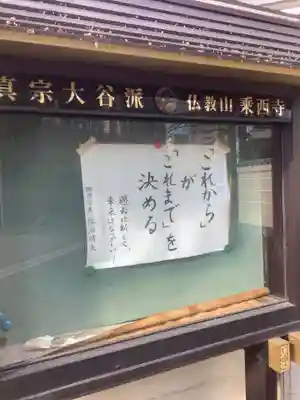 真宗大谷派 仏教山 乗西寺
「これから」
が
「これまで」を
決める
過去は新しく、
未来はなつかしい